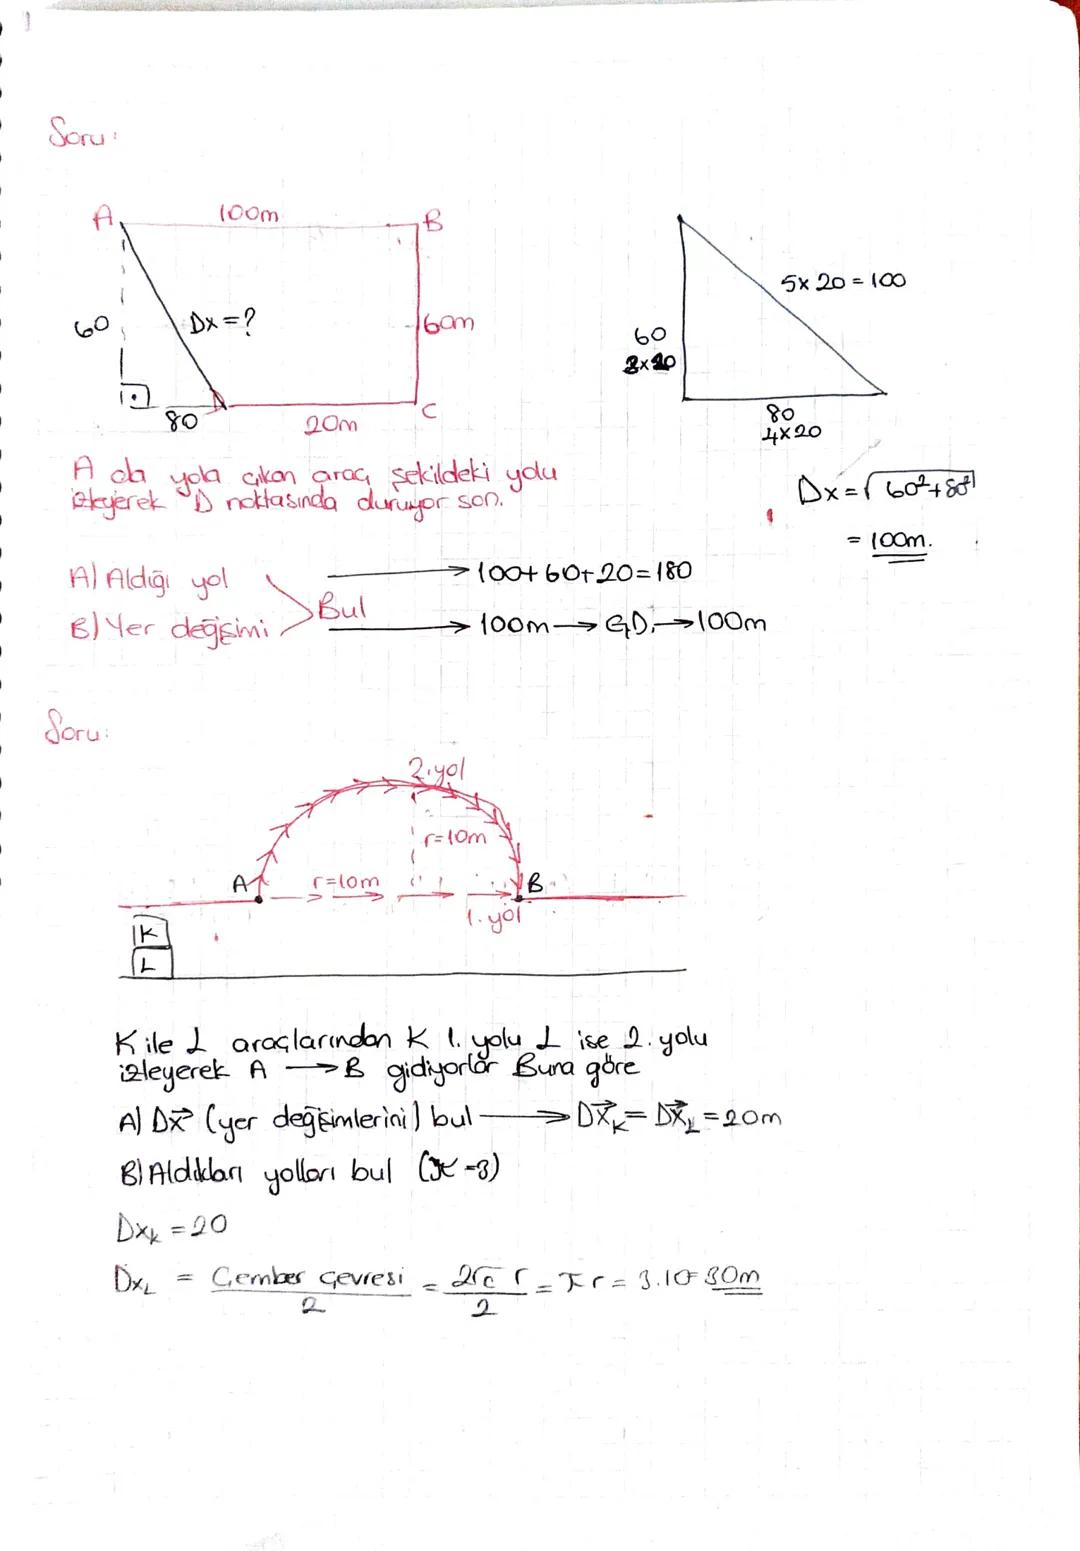 Soru:
A 100m B
60 Dx=? 60m
80 D 20m C
5x20=100
60
3x20
80
4x20
A da yola çıkan araç şekildeki yolu
izleyerek D noktasında duruyor son.
Dx=√60²+80²
= 100m.
A) Aldığı yol → 100+60+20=180
Bul
B) Yer değişimi → 100m → GD. → 100m
Soru:
2.yol
r=10m
A r=10m B
1. yol
K
L
K ile L araçlarından K 1. yolu L ise 2. yolu
izleyerek A → B gidiyorlar Buna göre
A) Dx⃗ (yer değişimlerini) bul → Dx⃗K = Dx⃗L = 20m
B) Aldıkları yolları bul (π=3)
Dxk = 20
DxL = Çember çevresi/2 = 2π r/2 = π r = 3.10=30m